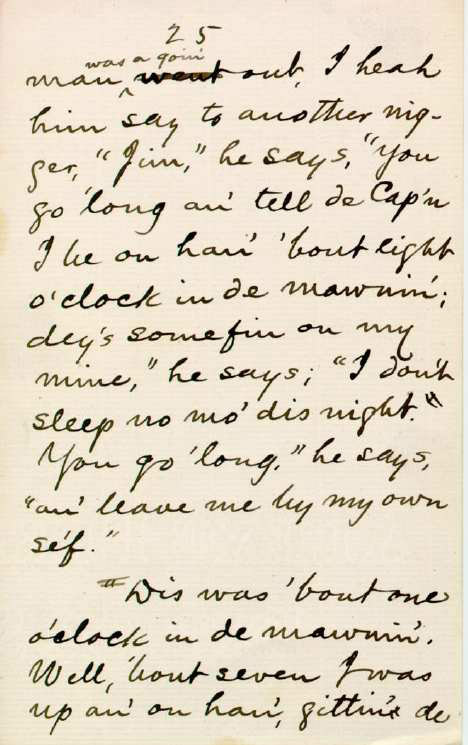 25
was a goin'
man went out, I heah
him say to another nig-
ger, "Jim," he says, "you
go 'long an' tell de Cap'n
I be on han' 'bout eight
o'clock in de mawnin';
dey's somefin on my
mine," he says; "I don't
sleep no mo' dis night."
You go 'long," he says,
"an' leave me by my own
se'f."
"Dis was 'bout one
o'clock in de mawnin'.
Well, 'bout seven I was
up an' on han', gittin' de